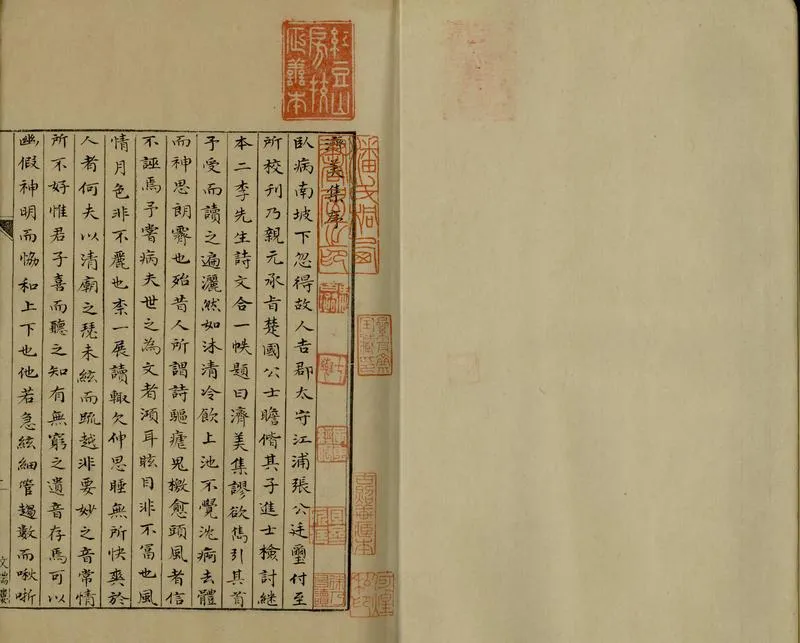 濟美集序
臥病南坡下忽得故人吉郡太守江浦張公廷璽付至
所校刊乃親元承旨楚國公士瞻偹其子進士檢討継
本二李先生詩文合一帙題曰濟美集謬欲雋引其首
予受而讀之遍灑然如沐清冷飲上池不覺沈痾去體
而神思朗霽也殆昔人所謂詩驅瘧鬼檄愈頭風者信
不誣焉予嘗病夫世之為文者澒耳眩目非不富也風
情月色非不麗也柰一展讀輙欠伸思睡無所快爽於
人者何夫以清廟之琵未絃而疏越非要妙之音常情
所不好惟君子喜而聽之知有無窮之遺音存焉可以
幽假神明而恊和上下也他若急絃細管趨數而啾哳
文瑞樓
紅豆山
房挍
正善本